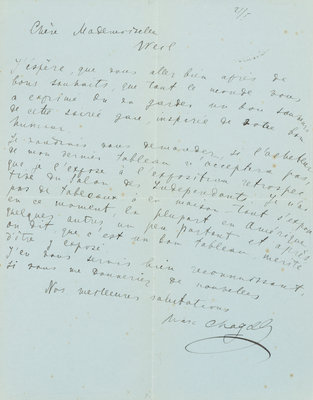 21/5
Chère Mademoiselle
Weil
J'espère que vous allez bien après de
bons souhaits, que tout le monde vous
a exprimé on va garder un bon souvenir
de cette soirée gaie, inspirée de votre bon
humeur.
Je voudrais vous demander, si l'acheteur
de mon dernier tableau n'acceptera pas
que je l'expose à l'exposition retrospec-
tive du Salon des Indépendants, je n'ai
pas de tableaux à la maison - tout s'expose
en ce moment la plupart en Amérique,
quelques autres un peu partout et après
on dit que c'est un bon tableau, mérite
d'être y exposé.
J'en vous serais bien reconnaissant,
si vous me donneriez de nouvelles
Nos meilleures salutations
Marc Chagall